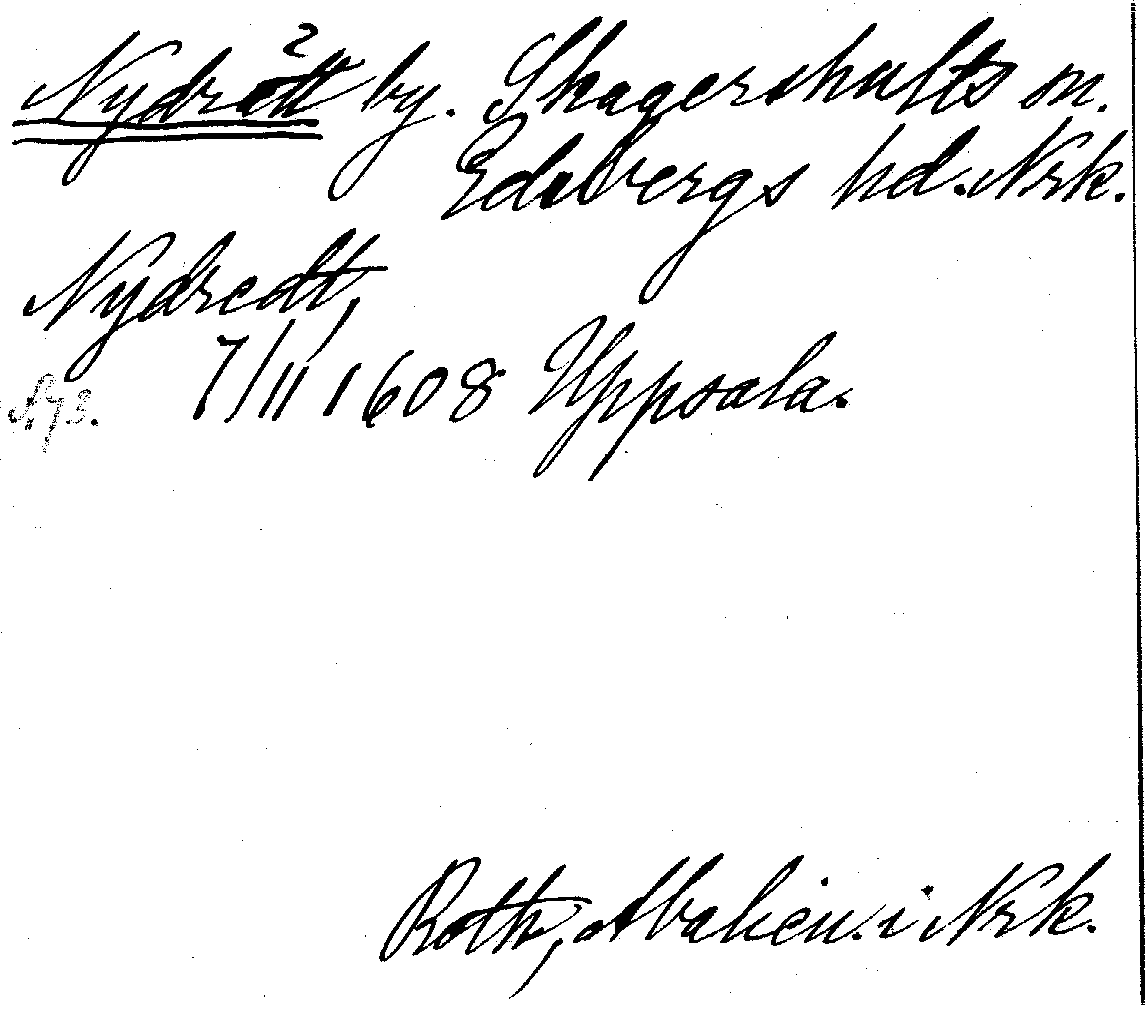 2
Nydrött by. Skagershults sn.
Edsbergs hd. Nrk.
Nydredt,
7/11 1608 Uppsala.
Roth, Abalien. i Nrk.